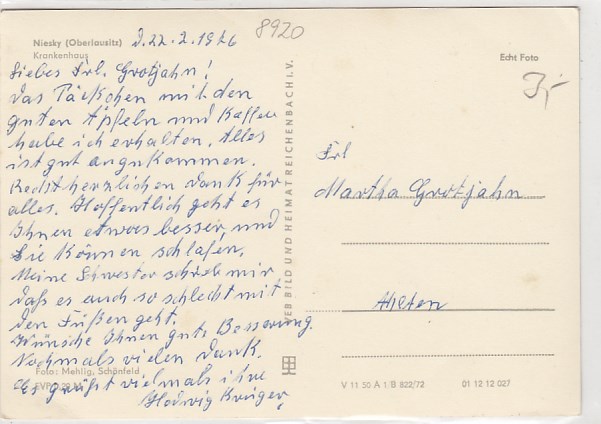 8920
Niesky (Oberlausitz) d. 22.2.1976
Krankenhaus
Echt Foto
3,-
Liebes Frl. Grotjahn!
Das Päckchen mit den
guten Äpfeln und Kaffee
habe ich erhalten. Alles
ist gut angekommen.
Recht herzlichen Dank für
alles. Hoffentlich geht es
Ihnen etwas besser, und
Sie können schlafen.
Meine Schwester schrieb mir
daß es auch so schlecht mit
den Füßen geht.
Wünsche Ihnen gute Besserung.
Nochmals vielen Dank.
Foto: Mehlig, Schönfeld
Es grüßt vielmals ihre
EVP
Hedwig Krüger,
VEB BILD UND HEIMAT REICHENBACH I. V.
Frl
Martha Grotjahn
Ahlten
V 11 50 A 1/B 822/72 01 12 12 027